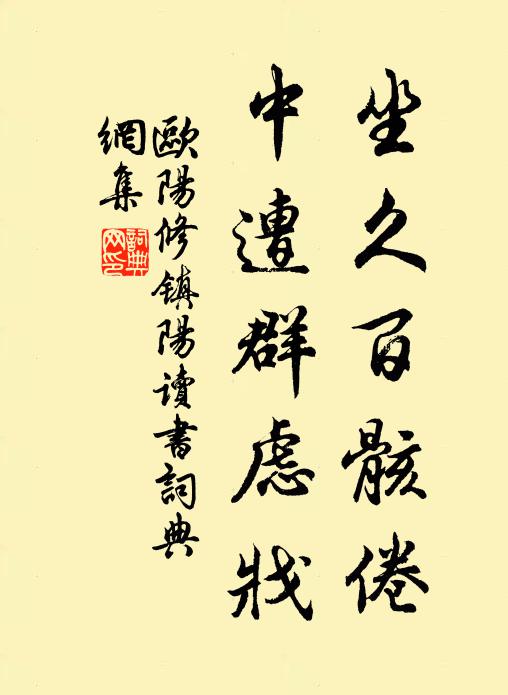 坐久百骸倦
中遭群虑戕
歐陽修镇陽读書詞典
網集
詞典
网印